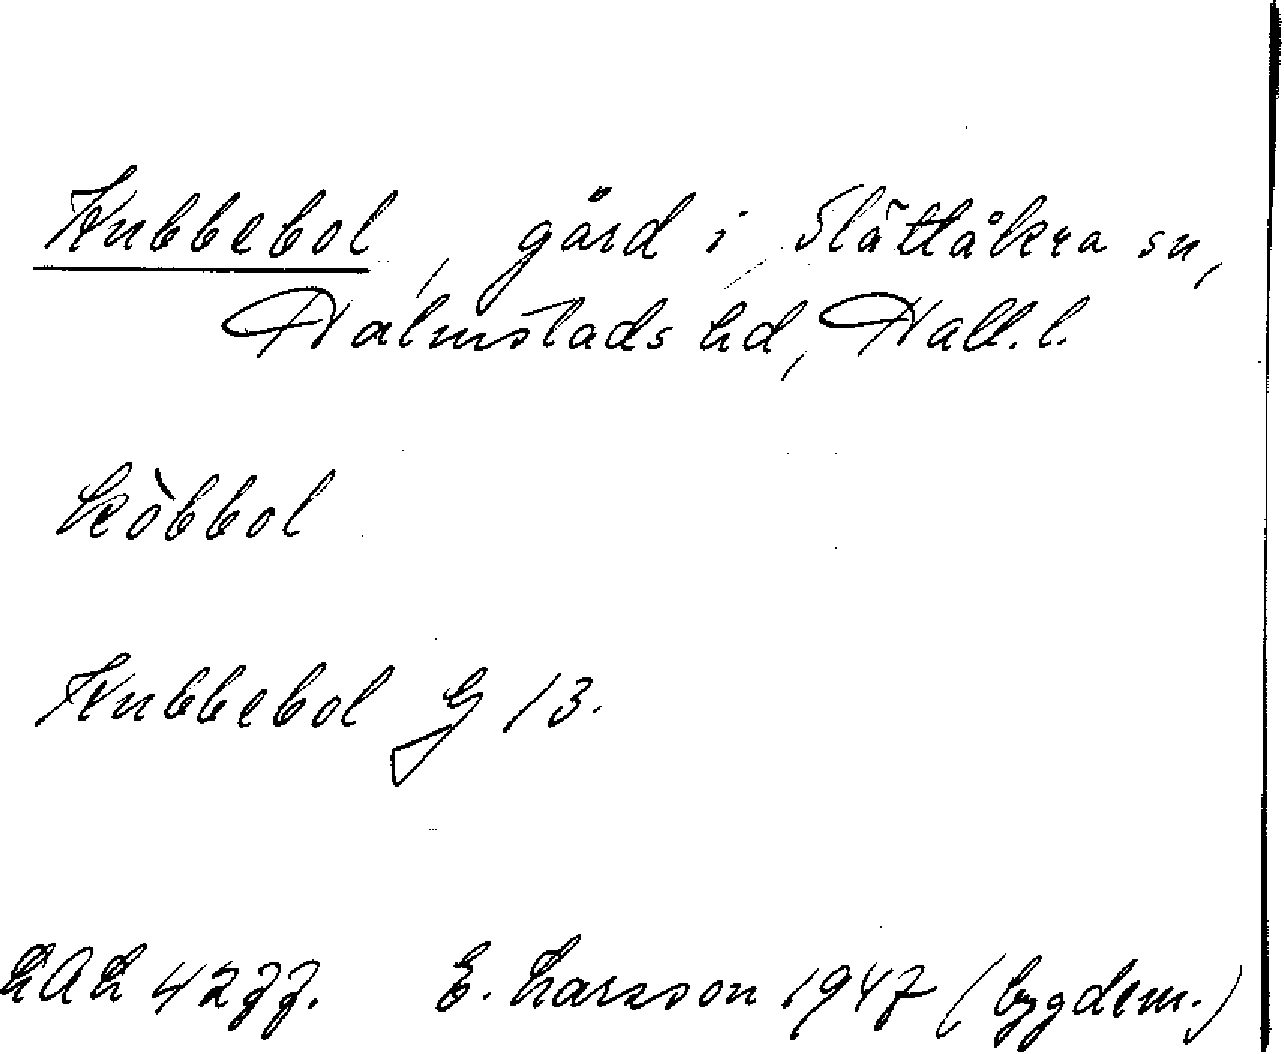 Kubbebol, gård i Slättåkra sn,
Halmstads hd, Hall. l.
kòbbol
Kubbebol G 13.
LAL 4277. E. Larsson 1947 (bygdem.)